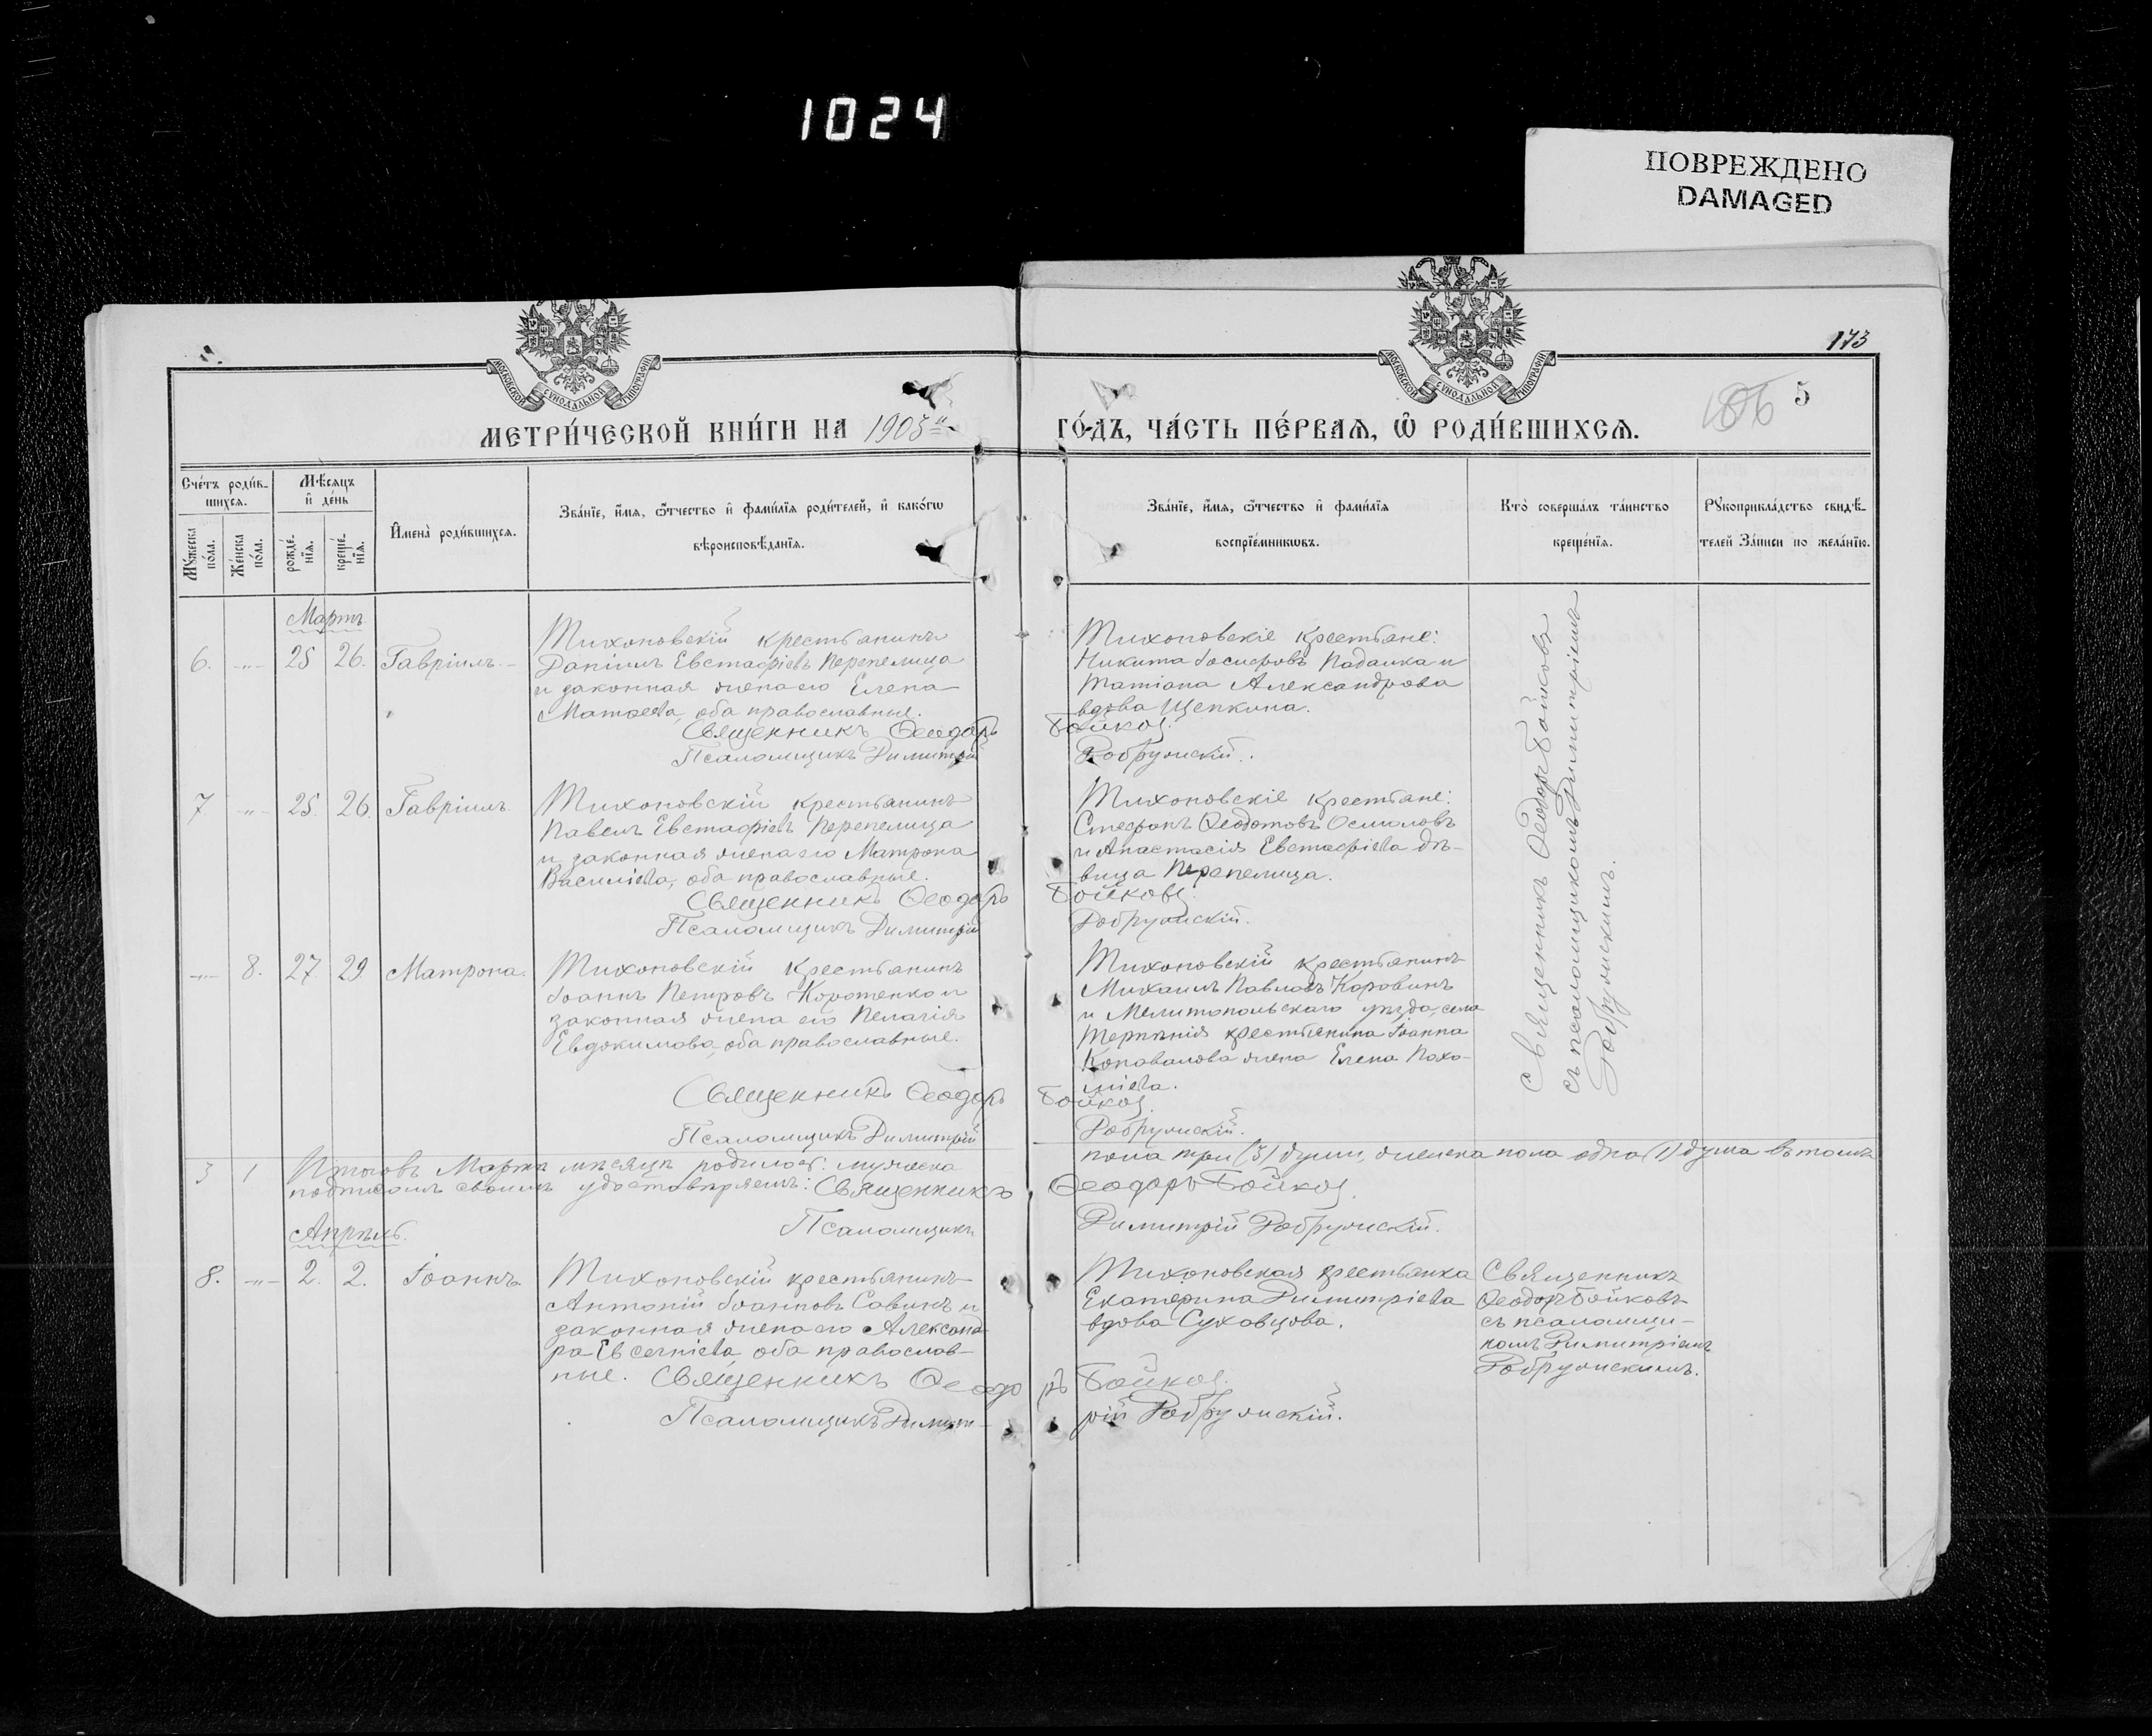 1024
ПОВРЕЖДЕНО
DAMAGED
173
5
186
МОСКОВСКОЙ СѴНОДАЛЬНОЙ ТИПОГРАФІИ
МОСКОВСКОЙ СѴНОДАЛЬНОЙ ТИПОГРАФІИ
МЕТРИ́ЧЕСКОЙ КНИ́ГИ НА 1903й
ГО́ДЪ, ЧА́СТЬ ПЕ́РВАѦ, Ѡ҆ РОДИ́ВШИХСѦ.
Сче́тъ роди́в-
шихсѧ.
Мꙋ́жеска по́ла.
Же́нска по́ла.
Мѣ́сѧцъ
и҆ де́нь
рожде́-нїѧ.
креще́-нїѧ.
И҆мена̀ роди́вшихсѧ.
Зва́нїе, и҆́мѧ, ѻ҆́тчество и҆ фами́лїѧ роди́телей, и҆ како́гѡ
вѣроисповѣ́данїѧ.
Зва́нїе, и҆́мѧ, ѻ҆́тчество и҆ фами́лїѧ
воспрїе́мникѡвъ.
Кто̀ соверша́лъ та́инство
креще́нїѧ.
Рꙋкоприкла́дство свидѣ́-
телей за́писи по жела́нїю.
Мартъ
6. -"- 25 26. Гавріилъ.
Тихоновскій крестьянинъ
Даніилъ Евстафіевъ Перепелица
и законная жена его Елена
Матѳеева, оба православные.
Священникъ Ѳеодоръ Бойков.
Псаломщикъ Димитрій Добружскій.
Тихоновскіе крестьяне:
Никита Іосифовъ Падалка и
Татіана Александрова
вдова Щепкина.
Священникъ Ѳеодоръ Бойковъ
съ псаломщикомъ Димитріемъ
Добружскимъ.
7 -"- 25. 26. Гавріилъ
Тихоновскій крестьянинъ
Павелъ Евстафіевъ Перепелица
и законная жена его Матрона
Васильева, оба православные.
Священникъ Ѳеодоръ Бойковъ
Псаломщикъ Димитрій Добружскій.
Тихоновскіе крестьяне:
Стефанъ Ѳеодотовъ Осмоловъ
и Анастасія Евстафіева дѣ-
вица Перепелица.
-"- 8. 27. 29 Матрона.
Тихоновскій крестьянинъ
Іоаннъ Петровъ Коротенко и
законная жена его Пелагія
Евдокимова, оба православные.
Священникъ Ѳеодоръ Бойков.
Псаломщикъ Димитрій Добружскій.
Тихоновскій крестьянинъ
Михаилъ Павловъ Коровинъ
и Мелитопольскаго уѣзда, села
Терпѣнія крестьянина Іоанна
Коновалова жена Елена Пахо-
міева.
3 1 Итого въ Мартѣ мѣсяцѣ родилось: мужеска пола три (3) души, женска пола одна (1) душа въ томъ
подписомъ своимъ удостовѣряемъ: Священникъ Ѳеодоръ Бойков.
Псаломщикъ Димитрій Добружскій.
Апрѣль.
8. -"- 2. 2. Іоаннъ
Тихоновскій крестьянинъ
Антоній Іоанновъ Савинъ и
законная жена его Александ-
ра Евсегніева, оба православ-
ные. Священникъ Ѳеодоръ Бойков.
Псаломщикъ Димитрій Добружскій.
Тихоновская крестьянка
Екатерина Димитріева
вдова Суховцова.
Священникъ
Ѳеодоръ Бойковъ
съ псаломщи-
комъ Димитріемъ
Добружскимъ.